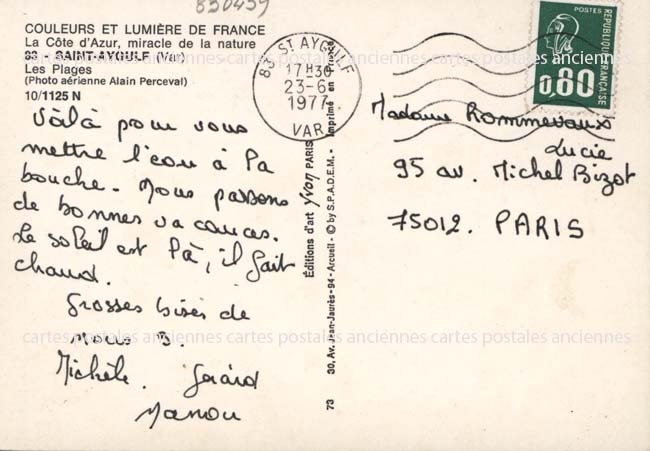 830459
COULEURS ET LUMIÈRE DE FRANCE
La Côte d'Azur, miracle de la nature
83 - SAINT-AYGULF (Var)
Les Plages
(Photo aérienne Alain Perceval)
10/1125 N
Voilà pour vous
mettre l'eau à la
bouche. Nous passons
de bonnes vacances.
Le soleil est là, il fait
chaud.
Grosses bises de
nous 3.
Michèle. Gérard
Manou
83 ST AYGULF
17H30
23-6
1977
VAR
Éditions d'art yvon PARIS
Imprimé en France
30, Av. Jean-Jaurès - 94 - Arcueil - © by S.P.A.D.E.M. -
73
POSTES
RÉPUBLIQUE FRANÇAISE
0,80
Madame Rommevaux
Lucie
95 av. Michel Bizot
75012. PARIS
cartes postales anciennes cartes postales anciennes cartes postales anciennes
cartes postales anciennes cartes postales anciennes cartes postales anciennes